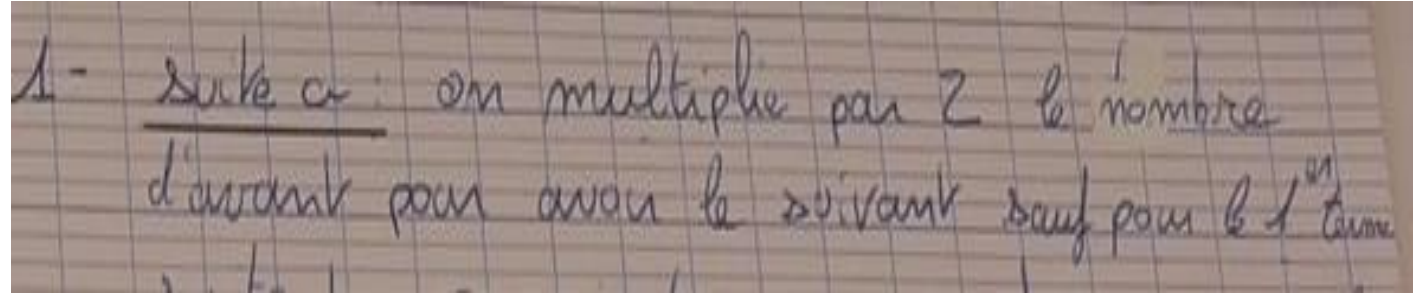 1- suite a : on multiplie par 2 le nombre
d'avant pour avoir le suivant sauf pour le 1er terme